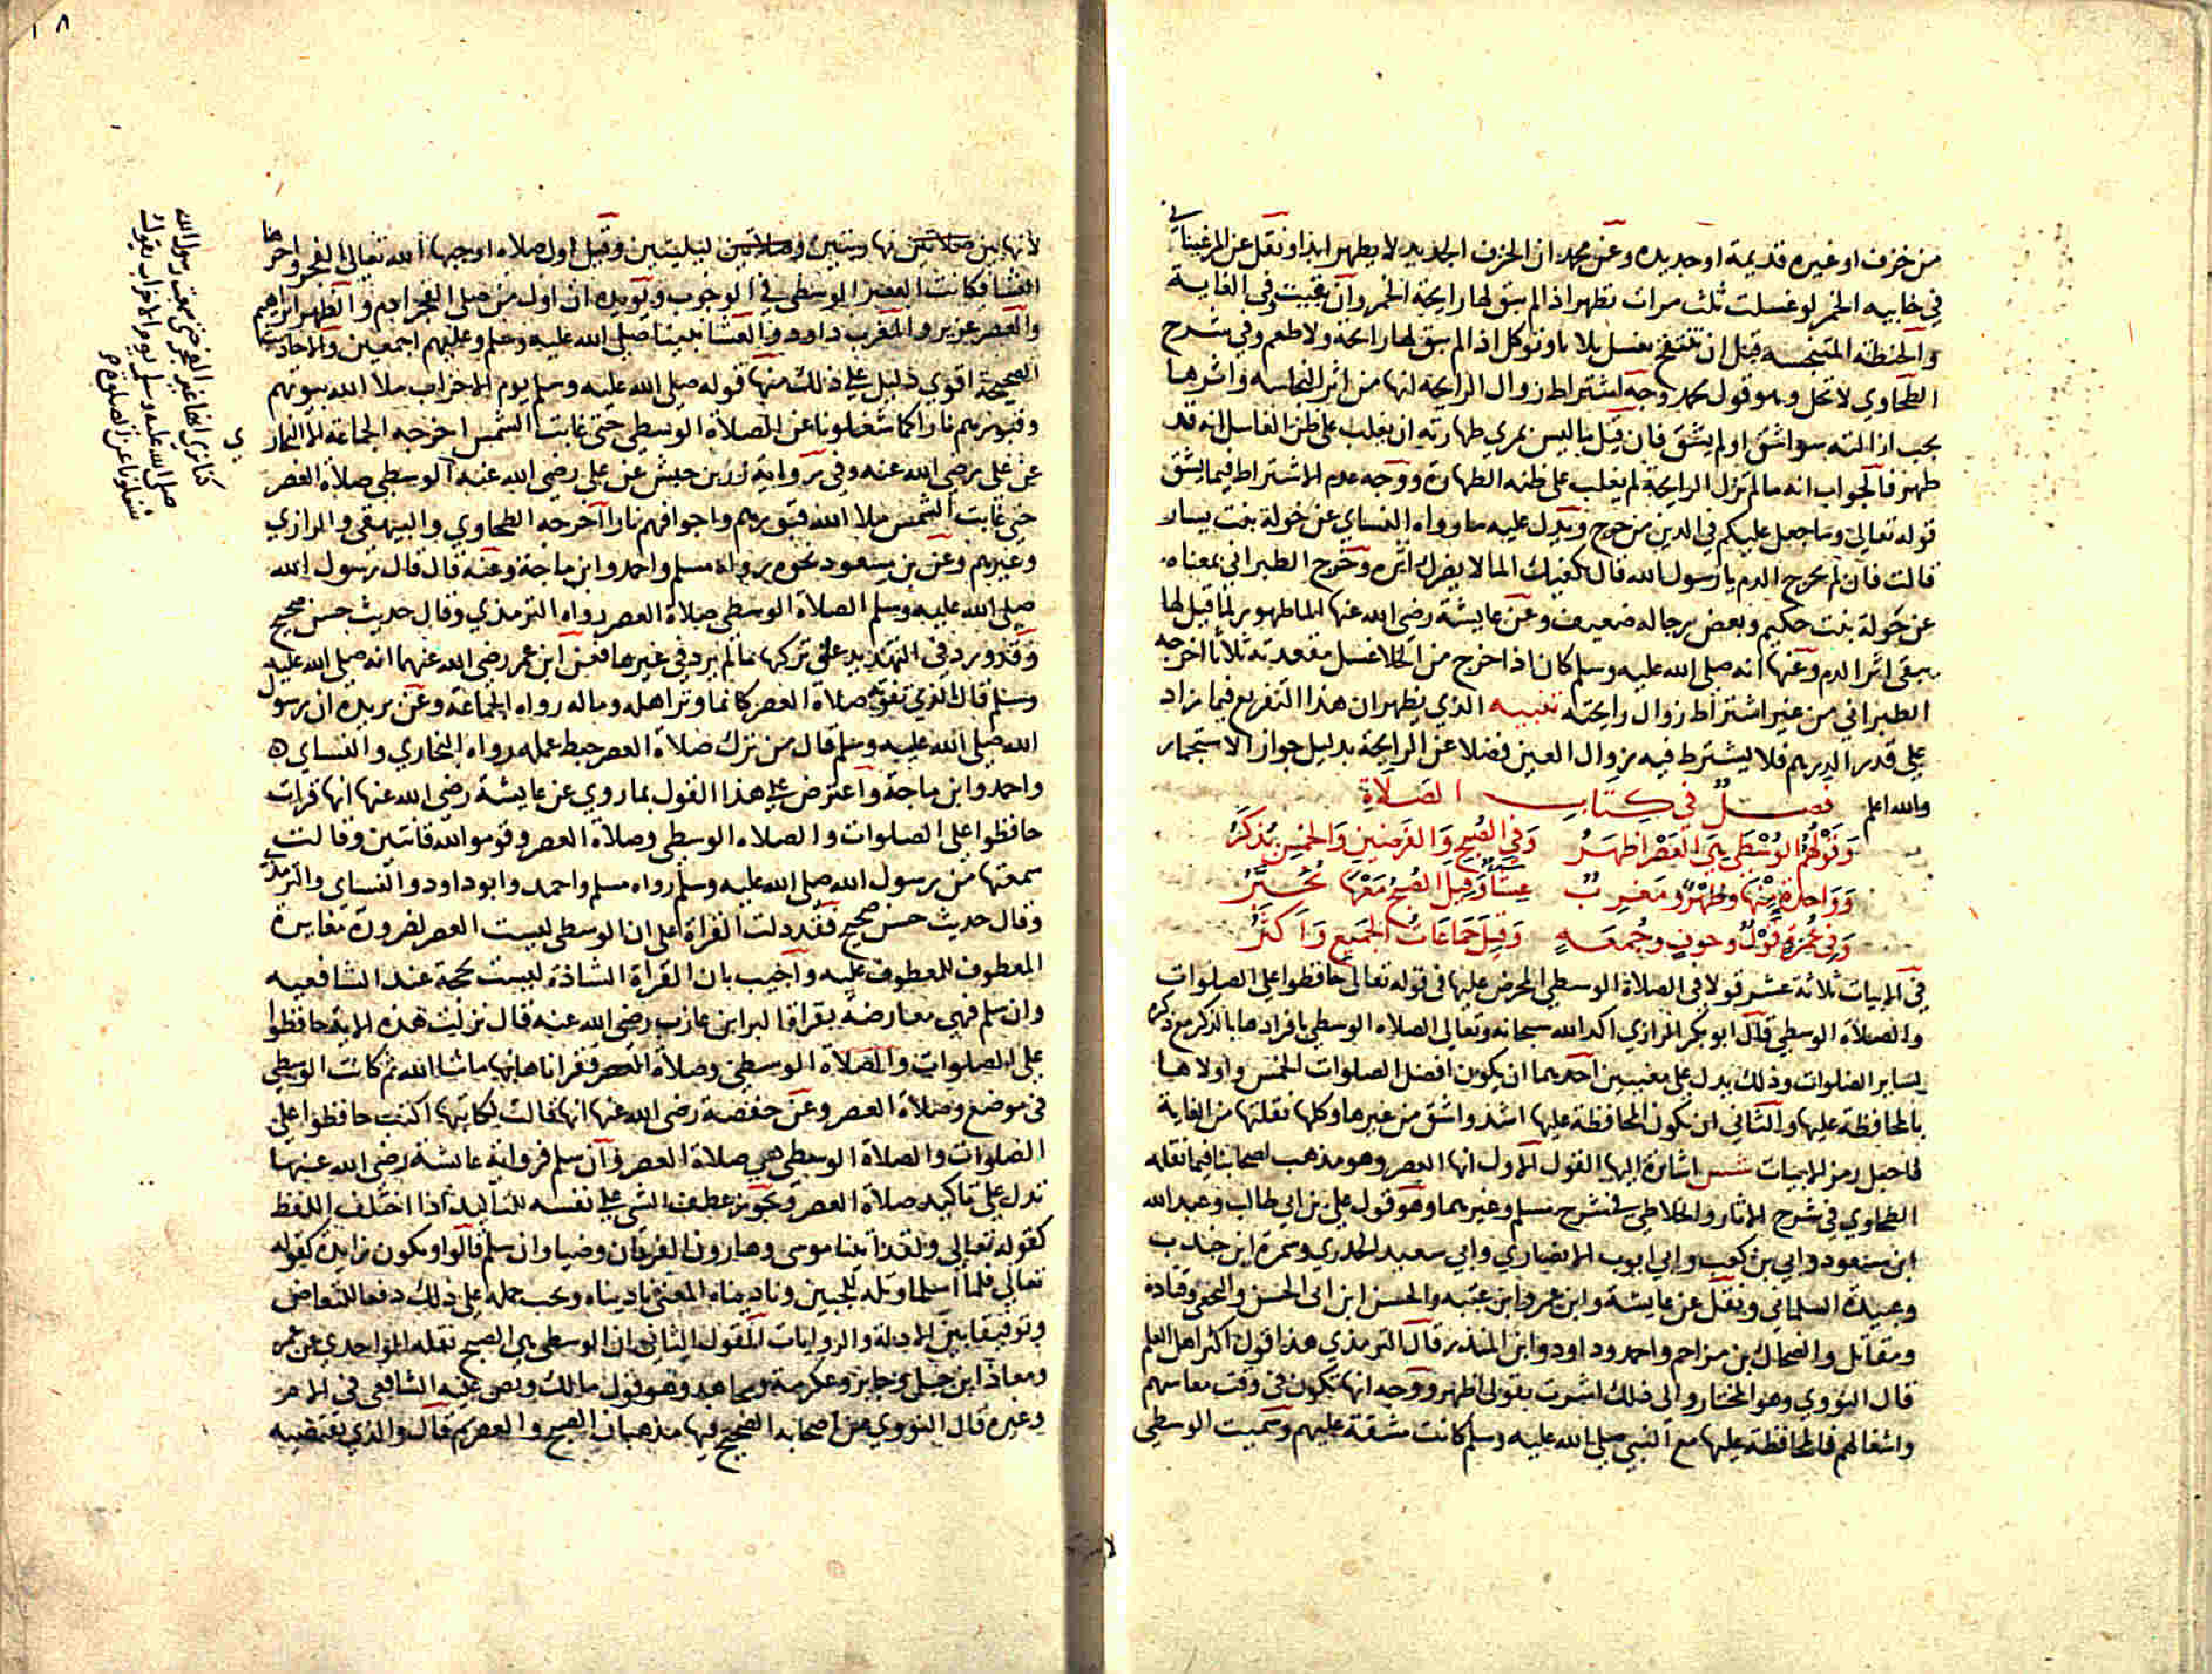 من خزف او غيره قديمة او حديده وعن محمد ان الخزف الجديد لا يطهر ابدا ونقل عن المرغيناني
في خابيه الخمر لو غسلت ثلث مرات تطهر اذا لم يبق لها رايحة الخمر وان بقيت وفي الغاية
والحنطه المتنجسه قبل ان تنتفخ تغسل ثلاثا وتوكل اذا لم يبق لها رايحة ولا طعم وفي شرح
الطحاوي لا تحل وهو قول محمد وجه اشتراط زوال الرايحة انها من اثر النجاسه واثرها
يجب ازالته سوا شق او لم يشق فان قيل ما ليس بمري طهارته ان يغلب على ظن الغاسل انه قد
طهر فالجواب انه ما لم تزل الرايحة لم يغلب على ظنه الطهارة ووجه عدم الاشتراط فيما يشق
قوله تعالى وما جعل عليكم في الدين من حرج ويدل عليه ما رواه النساي عن خولة بنت يسار
قالت فان لم يخرج الدم يا رسول الله قال يكفيك الما لا يضرك اثره وخرج الطبراني بمعناه
عن خولة بنت حكيم وبعض رجاله ضعيف وعن عايشة رضي الله عنها الما طهور لما قيل لها
يبقى اثر الدم وعنها انه صلى الله عليه وسلم كان اذا خرج من الخلا غسل مقعدته ثلاثا اخرجه
الطبراني من غير اشتراط زوال رايحته تنبيه الذي يظهر ان هذا التفريع فيما زاد
على قدر الدرهم فلا يشترط فيه زوال العين فضلا عن الرايحة بدليل جواز الاستجمار
والله اعلم فصل في كتاب الصلاة
وقولهم الوسطى هي العصر اظهر وفي الصبح والفرضين والخمس يذكر
وواحدة منها وظهر ومغرب عشا وقيل الصبح معها تخير
وفي عمرة قول وخوف وجمعة وقيل جماعات الجميع واكثر
في الابيات ثلاثة عشر قولا في الصلاة الوسطى المحرض عليها في قوله تعالى حافظوا على الصلوات
والصلاة الوسطى قال ابو بكر الرازي اكد الله سبحانه وتعالى الصلاه الوسطى بافرادها بالذكر مع ذكره
لساير الصلوات وذلك يدل على معنيين احدهما ان يكون افضل الصلوات الخمس واولاها
بالمحافظة عليها والثاني ان يكون المحافظة عليها اشد واشق من غيرها وكلها نقلتها من الغاية
اشارة اليها القول الاول انها العصر وهو مذهب اصحابنا فيما نقله
الطحاوي في شرح الاثار والخلاطي في شرح مسلم وغيرهما وهو قول علي بن ابي طالب وعبد الله
ابن مسعود وابي بن كعب وابي ايوب الانصاري وابي سعيد الخدري وسمرة ابن جندب
وعبيدة السلماني ونقل عن عايشة وابن عمر وابن عتبه والحسن ابن ابي الحسن والنخعي وقتادة
ومقاتل والضحاك بن مزاحم واحمد وداود وابن المنذر قال الترمذي هذا قول اكثر اهل العلم
قال النووي وهو المختار والى ذلك اشرت بقولي اظهر ووجه انها تكون في وقت معاشهم
واشغالهم فالمحافظة عليها مع النبي صلى الله عليه وسلم كانت مشقة عليهم وسميت الوسطى
١٨
لانها بين صلاتين نهاريتين وصلاتين ليليتين وقيل اول صلاه اوجبها الله تعالى الفجر واخرها
العشا فكانت العصر الوسطى في الوجوب ويويده ان اول من صلى الفجر ادم والظهر ابراهيم
والعصر عزير والمغرب داود والعشا نبينا صلى الله عليه وسلم وعليهم اجمعين والاحاديث
الصحيحة اقوى دليل على ذلك منها قوله صلى الله عليه وسلم يوم الاحزاب ملا الله بيوتهم
وقبورهم نارا كما شغلونا عن الصلاة الوسطى حتى غابت الشمس اخرجه الجماعة الا البخاري
عن علي رضي الله عنه وفي رواية زر بن حبيش عن علي رضي الله عنه الوسطى صلاة العصر
حتى غابت الشمس ملا الله قبورهم واجوافهم نارا اخرجه الطحاوي والبيهقي والرازي
وغيرهم وعن بن مسعود نحوه رواه مسلم واحمد وابن ماجة وعنه قال قال رسول الله
صلى الله عليه وسلم الصلاة الوسطى صلاة العصر رواه الترمذي وقال حديث حسن صحيح
وقد ورد في التهديد على تركها ما لم يرد في غيرها فعن ابن عمر رضي الله عنهما انه صلى الله عليه
وسلم قال الذي تفوته صلاة العصر كانما وتر اهله وماله رواه الجماعة وعن بريده ان رسول
الله صلى الله عليه وسلم قال من ترك صلاة العصر حبط عمله رواه البخاري والنساي
واحمد وابن ماجة واعترض على هذا القول بما روي عن عايشة رضي الله عنها انها قرات
حافظوا على الصلوات والصلاه الوسطى وصلاة العصر وقوموا لله قانتين وقالت
سمعتها من رسول الله صلى الله عليه وسلم رواه مسلم واحمد وابو داود والنساي والترمذي
وقال حديث حسن صحيح فقد دلت القراة على ان الوسطى ليست العصر لضرورة مغايرة
المعطوف للمعطوف عليه واجيب بان القراة الشاذة ليست بحجة عند الشافعيه
وان سلم فهي معارضة بقراة البرا بن عازب رضي الله عنه قال نزلت هذه الاية حافظوا
على الصلوات والصلاه الوسطى وصلاة العصر فقراناها بها ما شا الله ثم كانت الوسطى
في موضع وصلاة العصر وعن حفصة رضي الله عنها انها قالت لكاتبها اكتب حافظوا على
الصلوات والصلاة الوسطى هي صلاة العصر وان سلم فرواية عائشة رضي الله عنها
تدل على تاكيد صلاة العصر ويجوز عطف الشي على نفسه للتاكيد اذا اختلف اللفظ
كقوله تعالى ولقد اتينا موسى وهارون الفرقان وضيا وان سلم قالوا وتكون زايدة كقوله
تعالى فلما اسلما وتله للجبين وناديناه المعنى ناديناه ويجب حمله على ذلك دفعا للتعارض
وتوفيقا بين الادلة والروايات القول الثاني ان الوسطى هي الصبح نقله الواحدي عن عمر
ومعاذ ابن جبل وجابر وعكرمة ومجاهد وهو قول مالك ونص عليه الشافعي في الام
وغيره قال النووي من اصحابه الصحيح فيها مذهبان الصبح والعصر ثم قال والذي تقتضيه
صلى الله عليه وسلم يوم الاحزاب يقول
شغلونا عن الصلوة